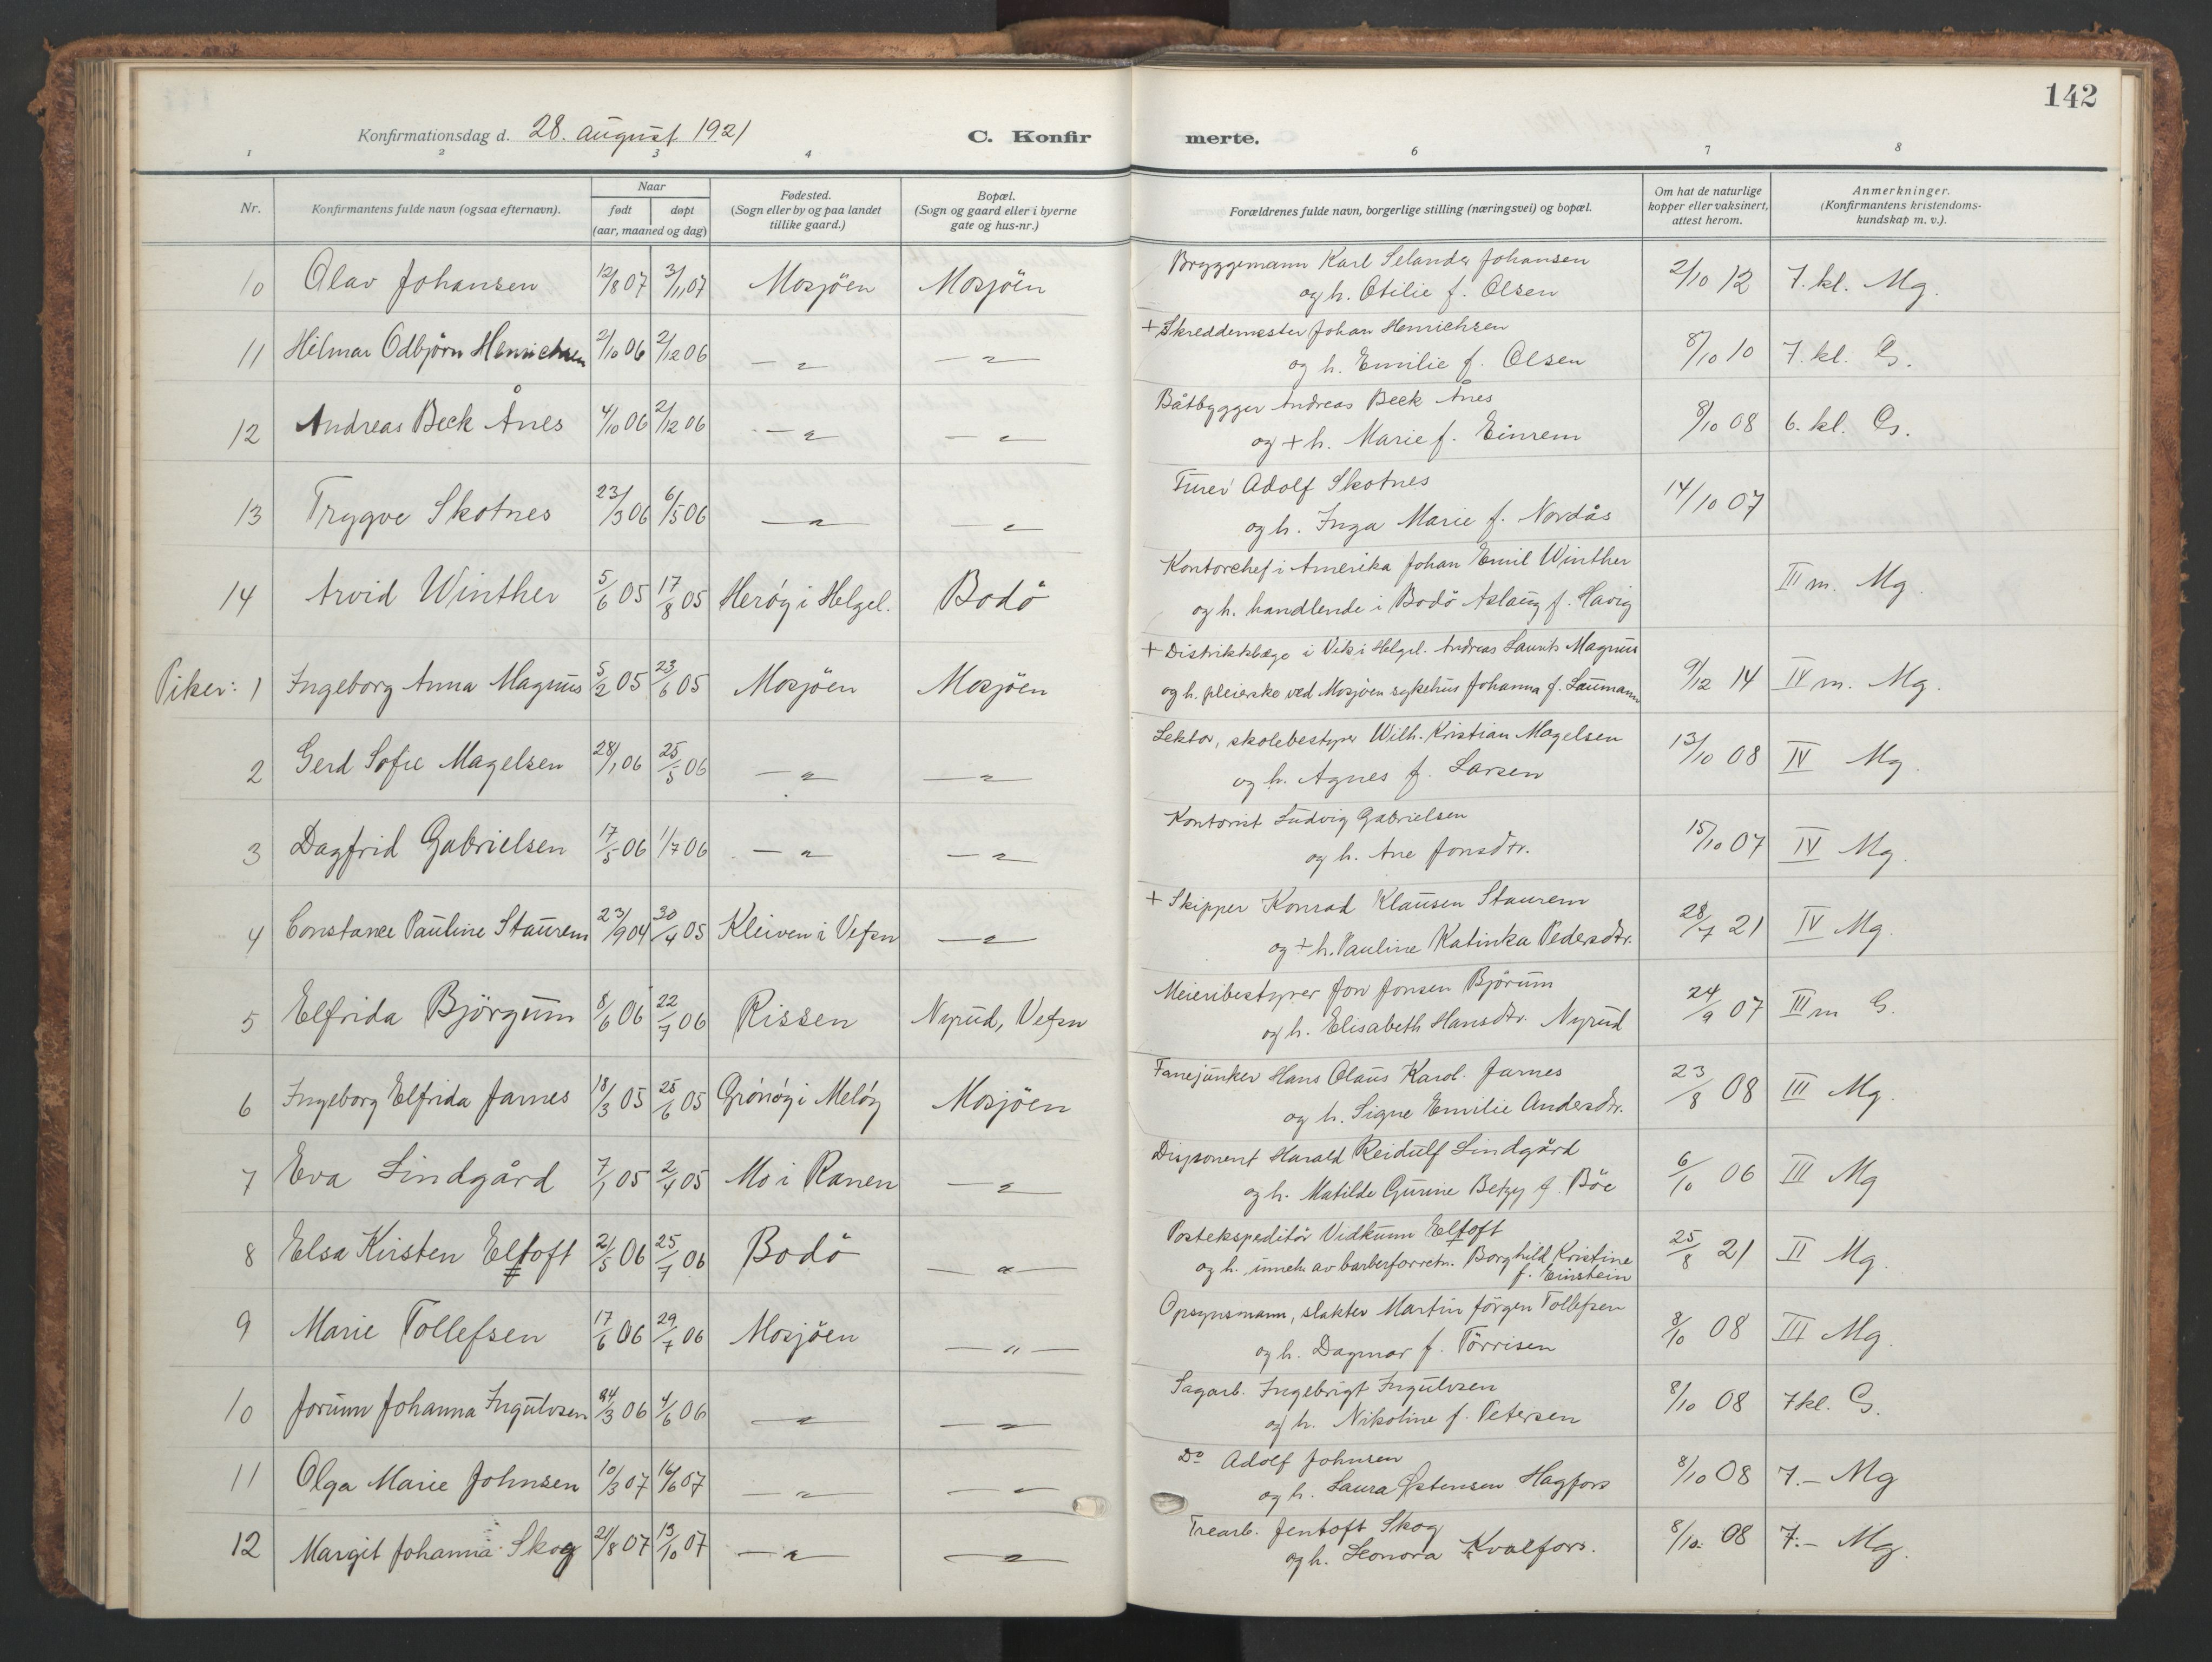 142
Konfirmationsdag d. 28. august 1921
C. Konfir
merte.
1 2 3 4 6 7 8
Nr.
Konfirmantens fulde navn (ogsaa efternavn).
Naar
født døpt
(aar, maaned og dag)
Fødested.
(Sogn eller by og paa landet
tillike gaard.)
Bopæl.
(Sogn og gaard eller i byerne
gate og hus-nr.)
Forældrenes fulde navn, borgerlige stilling (næringsvei) og bopæl.
Om hat de naturlige
kopper eller vaksinert,
attest herom.
Anmerkninger.
(Konfirmantens kristendoms-
kundskap m. v.).
10 Olav Johansen 12/8 07 3/11 07 Mosjöen Mosjöen Bryggemann Karl Selander Johansen
og h. Otilie f. Olsen 2/10 12 7. kl. Mg.
11 Hilmar Odbjörn Henrichsen 2/10 06 2/12 06 — " — — " — + Skreddemester Johan Henrichsen
og h. Emilie f. Olsen 8/10 10 7. kl. G.
12 Andreas Beck Ånes 4/10 06 2/12 06 — " — — " — Båtbygger Andreas Beck Ånes
og + h. Marie f. Einrem 8/10 08 6. kl. G.
13 Trygve Skotnes 23/3 06 6/5 06 — " — — " — Furer Adolf Skotnes
og h. Inga Marie f. Nordås 14/10 07
14 Arvid Winther 5/6 05 17/8 05 Herøy i Helgel. Bodö Kontorchef i Amerika Johan Emil Winther
og h. handlende i Bodö Aslaug f. Havig III m. Mg.
Piker: 1 Ingeborg Anna Magnus 5/2 05 23/6 05 Mosjöen Mosjöen + Distriktslæge i Vik i Helgel. Andreas Laurits Magnus
og h. pleierske ved Mosjöen sykehus Johanna f. Laumann 9/12 14 IV m. Mg.
2 Gerd Sofie Magelsen 28/1 06 25/5 06 — " — — " — Lektor, skolebestyrer Wilh. Kristian Magelsen
og h. Agnes f. Larsen 13/10 08 IV Mg.
3 Dagfrid Gabrielsen 17/5 06 1/7 06 — " — — " — Kontorist Ludvig Gabrielsen
og h. Ane Jonsdtr. 15/10 07 IV Mg.
4 Constance Pauline Staurem 23/9 04 30/4 05 Kleiven i Vefsn — " — + Skipper Konrad Klausen Staurem
og + h. Pauline Katinka Pedersdtr. 28/7 21 IV Mg.
5 Elfrida Björgum 8/6 06 22/7 06 Rissen Nyrud, Vefsn Meieribestyrer Jon Jonsen Björum
og h. Elisabeth Hansdtr. Nyrud 24/9 07 III m G.
6 Ingeborg Elfrida Jarnes 18/3 05 25/6 05 Grönöy i Meløy Mosjöen Fanejunker Hans Olaus Karol. Jarnes
og h. Signe Emilie Andersdtr. 23/8 08 III Mg.
7 Eva Lindgård 7/1 05 2/4 05 Mo i Ranen — " — Disponent Harald Reidulf Lindgård
og h. Matilde Gurine Betzy f. Böe 6/10 06 III Mg
8 Elsa Kirsten Eltoft 21/5 06 25/7 06 Bodö — " — Postekspeditör Vidkunn Eltoft
og h. inneh. av barberforretn. Borghild Kristine
f. Einstein 25/8 21 II Mg.
9 Marie Tollefsen 17/6 06 29/7 06 Mosjöen — " — Opsynsmann, slakter Martin Jörgen Tollefsen
og h. Dagmar f. Törrisen 8/10 08 III Mg.
10 Jorunn Johanna Ingulvsen 24/3 06 4/6 06 — " — — " — Sagarb. Ingebrigt Ingulvsen
og h. Nikoline f. Petersen 8/10 08 7 kl. G.
11 Olga Marie Johnsen 10/3 07 16/6 07 — " — — " — Do Adolf Johnsen
og h. Laura Østensen Hagfors 8/10 08 7.– Mg
12 Margit Johanna Skog 21/8 07 13/10 07 — " — — " — Trearb. Jentoft Skog
og h. Leonora Kvalfors. 8/10. 08 7.– Mg.